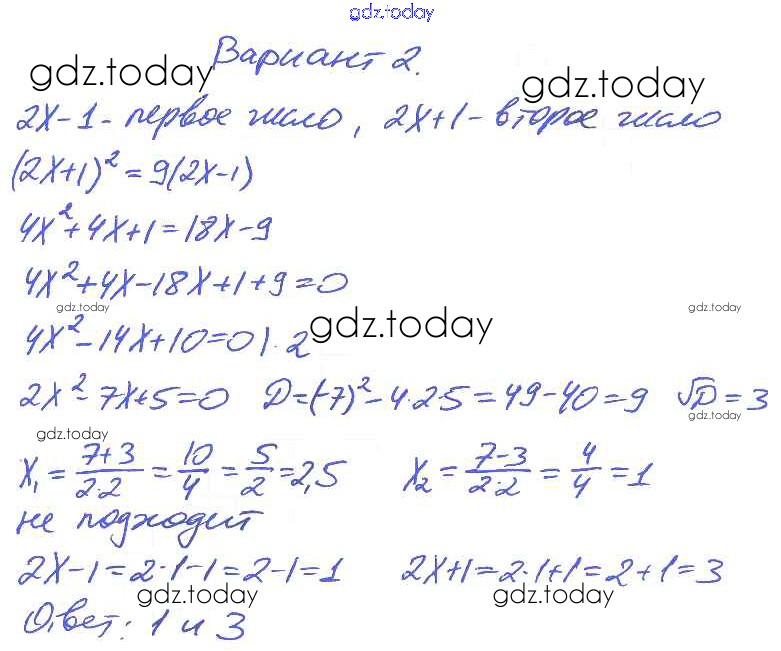 gdz.today
Вариант 2.
gdz.today gdz.today
2x-1 - первое число, 2x+1 - второе число
(2x+1)² = 9(2x-1)
4x²+4x+1=18x-9
4x²+4x-18x+1+9=0
gdz.today gdz.today
4x²-14x+10=0 |:2 gdz.today
2x²-7x+5=0 D=(-7)²-4·2·5=49-40=9 √D=3
gdz.today
gdz.today
x₁ = 7+3/2·2 = 10/4 = 5/2 = 2,5 x₂ = 7-3/2·2 = 4/4 = 1
не подходит
2x-1=2·1-1=2-1=1 2x+1=2·1+1=2+1=3
gdz.today gdz.today
Ответ: 1 и 3